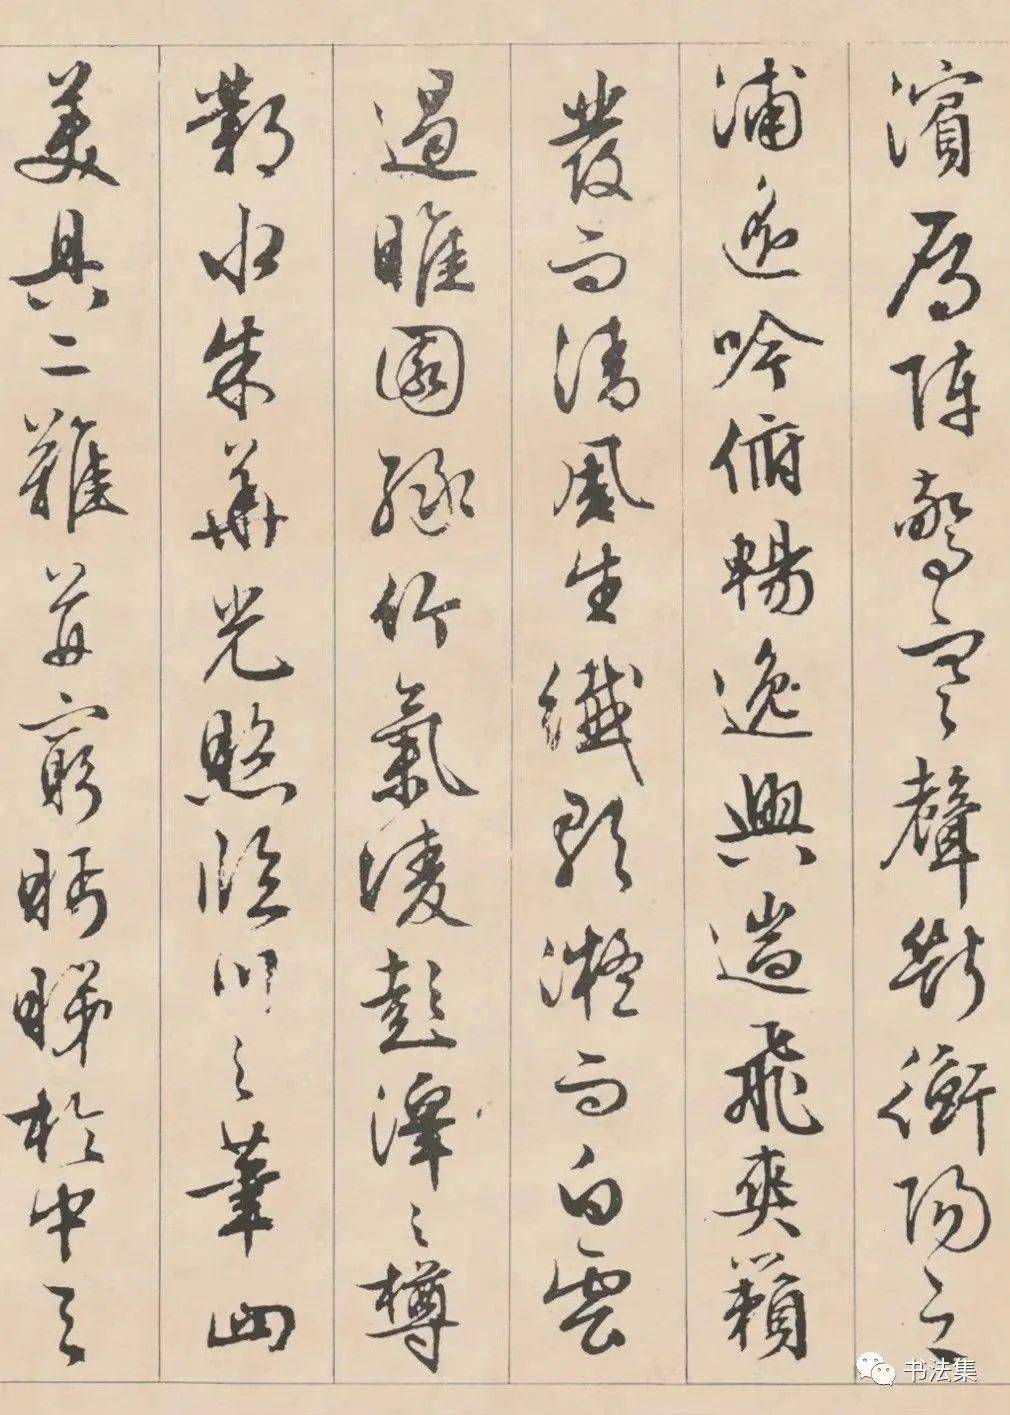 濱鴈陣驚寒聲斷衡陽之
浦遙吟俯暢逸興遄飛爽籟
發而清風生纖歌凝而白雲
遏睢園綠竹氣淩彭澤之樽
鄴水朱華光照臨川之筆四
美具二難并窮眄睇於中天
书法集